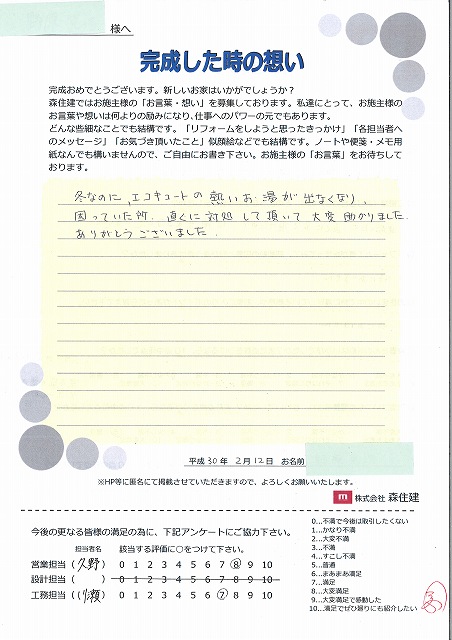 様へ
完成した時の想い
完成おめでとうございます。新しいお家はいかがでしょうか？
森住建ではお施主様の「お言葉・想い」を募集しております。私達にとって、お施主様の
お言葉や想いは何よりの励みになり、仕事へのパワーの元でもあります。
どんな些細なことでも結構です。「リフォームをしようと思ったきっかけ」「各担当者へ
のメッセージ」「お気づき頂いたこと」似顔絵などでも結構です。ノートや便箋・メモ用
紙なんでも構いませんので、ご自由にお書き下さい。お施主様の「お言葉」をお待ちして
おります。
冬なのに、エコキュートの熱いお湯が出なくなり、
困っていた所、直ぐに対処して頂いて大変助かりました。
ありがとうございました。
平成30年 2月12日 お名前
※HP等に匿名にて掲載させていただきますので、よろしくお願いいたします。
m 株式会社 森住建
今後の更なる皆様の満足の為に、下記アンケートにご協力下さい。
担当者名 該当する評価に○をつけて下さい。
営業担当 (久野) 0 1 2 3 4 5 6 7 8 9 10
設計担当 ( ) 0 1 2 3 4 5 6 7 8 9 10
工務担当 (瀬) 0 1 2 3 4 5 6 7 8 9 10
0…不満で今後は取引したくない
1…かなり不満
2…大変不満
3…不満
4…すこし不満
5…普通
6…まあまあ満足
7…満足
8…大変満足
9…大変満足で感動した
10…満足でぜひ周りにも紹介したい